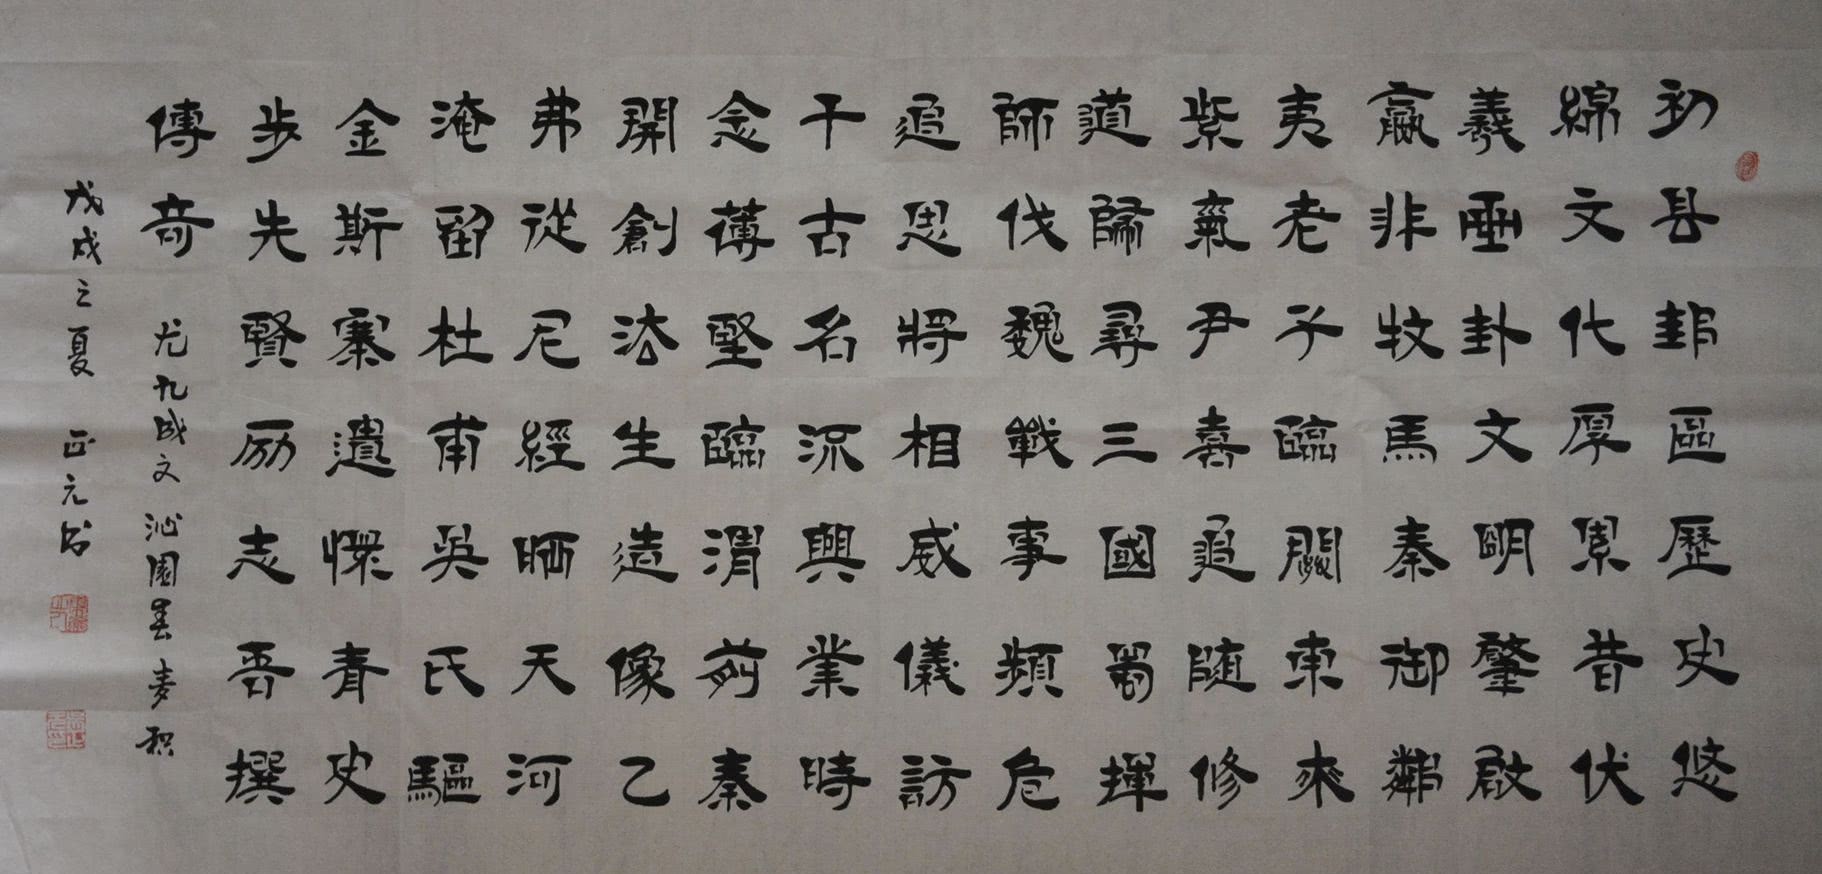 初县邽區歷史悠
綿文代厚累昔伏
羲畫卦文明肇啟
嬴非牧馬秦御鄰
夷老子臨關東來
紫氣尹喜追随修
道歸尋三國蜀揮
師伐魏戰事頻危
追思將相威儀訪
千古名流興業時
念薄堅臨渭前秦
開創法生造像乙
弗從尼經晒天河
淹留杜甫吳氏驅
金斯寨遺憾青史
步先賢励志吾撰
傳奇
尤九成文沁園春麦积
戊戌之夏 正元书